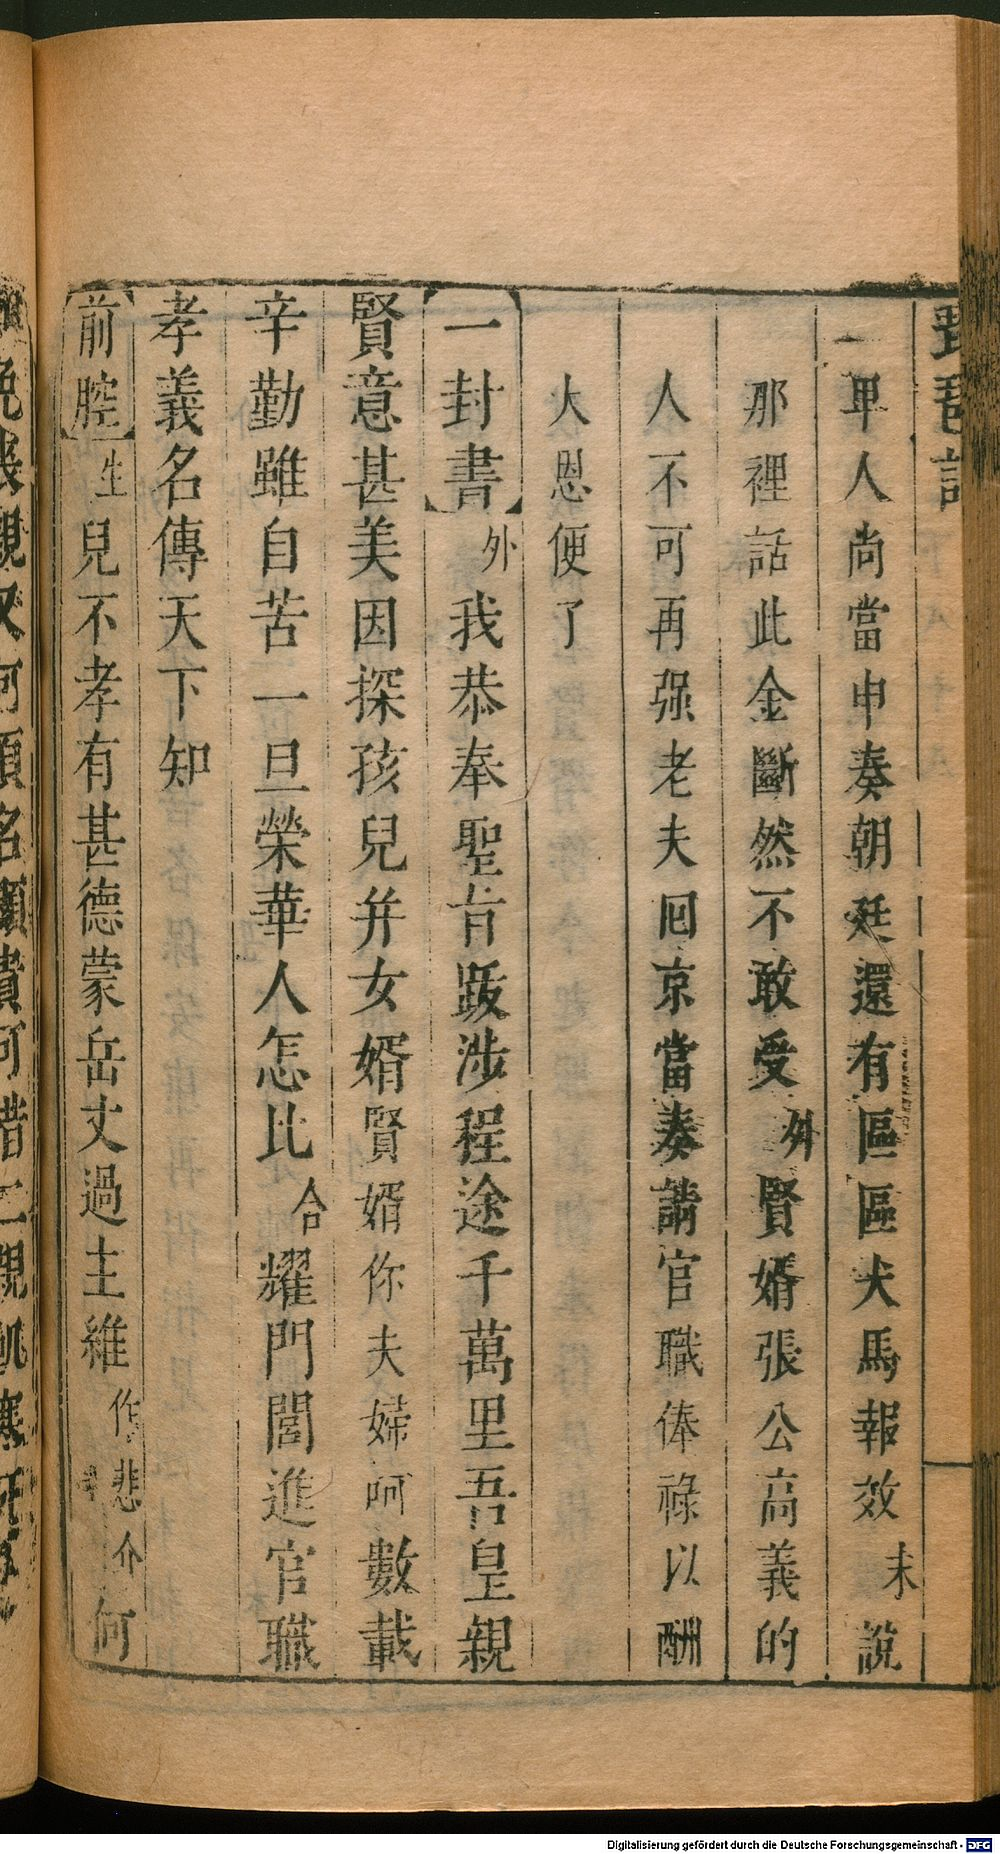 琵琶記
卑人尚當申奏朝廷還有區區犬馬報效末說
那裡話此金斷然不敢受外賢婿張公高義的
人不可再强老夫囘京當奏請官職俸祿以酬
大恩便了
【一封書】外我恭奉聖旨跋涉程途千萬里吾皇親
賢意甚美因探孩兒并女婿賢婿你夫婦呵數載
辛勤雖自苦一旦榮華人怎比合耀門閭進官職
孝義名傳天下知
【前腔】生兒不孝有甚德蒙岳丈過主維作悲介何
Digitalisierung gefördert durch die Deutsche Forschungsgemeinschaft - DFG